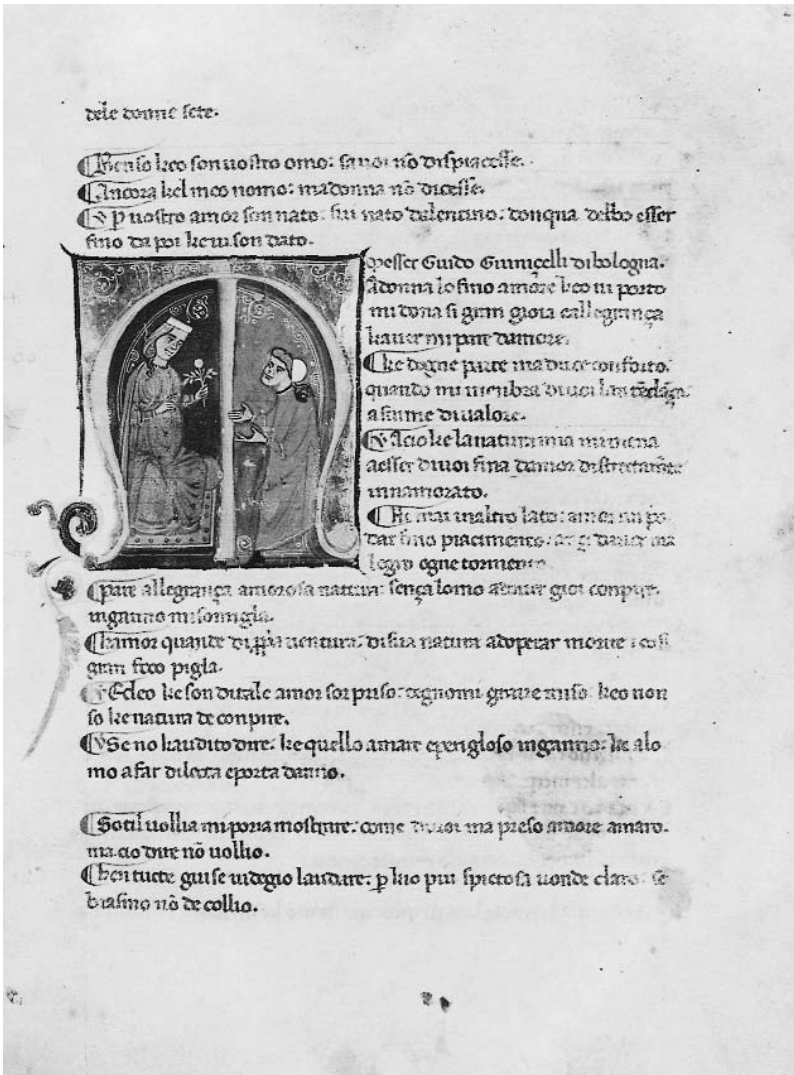 dele donne sete.
Ben so keo son uostro omo: sauoi nõ dispiacesse.
Ancora kel meo nomo: madonna nõ dicesse.
E p uostro amor son nato: fui nato dalentino: donqua debbo esser
fino da poi keui son dato.
Messer Guido Guiniçelli di bologna.
Adonna lo fino amore keo ui porto
mi dona si gran gioia e allegrança
kauer mi pare damore.
Ke dogne parte maduce conforto:
quando mi membra di uoi
afarme di ualore.
Acio ke la natura mia mi mena
aesser di uoi fina damor
innamorato.
mai in altro lato: amor mi po
dar fino piacimento:
legra ogne tormento
pare allegrança amorosa natura: sença lomo
inganno misomigla.
Kamor quande di ppia uentura: di sua natura adoperar morte: cosi
gran foco pigla.
Ed eo ke son di tale amor sorpriso: tegnomi graue miso: keo non
so ke natura de conpire.
Se no kaudito dire: ke quello amare eperigloso inganno: ke alo
mo afar dilecta eporta danno.
Sotil uollia mi poria mostrare: come di uoi ma preso amore amaro.
ma cio dire nõ uollio.
Ken tucte guise ui degio laudare: p kio piu spietosa uonde claro: se
biasmo nõ de collio.